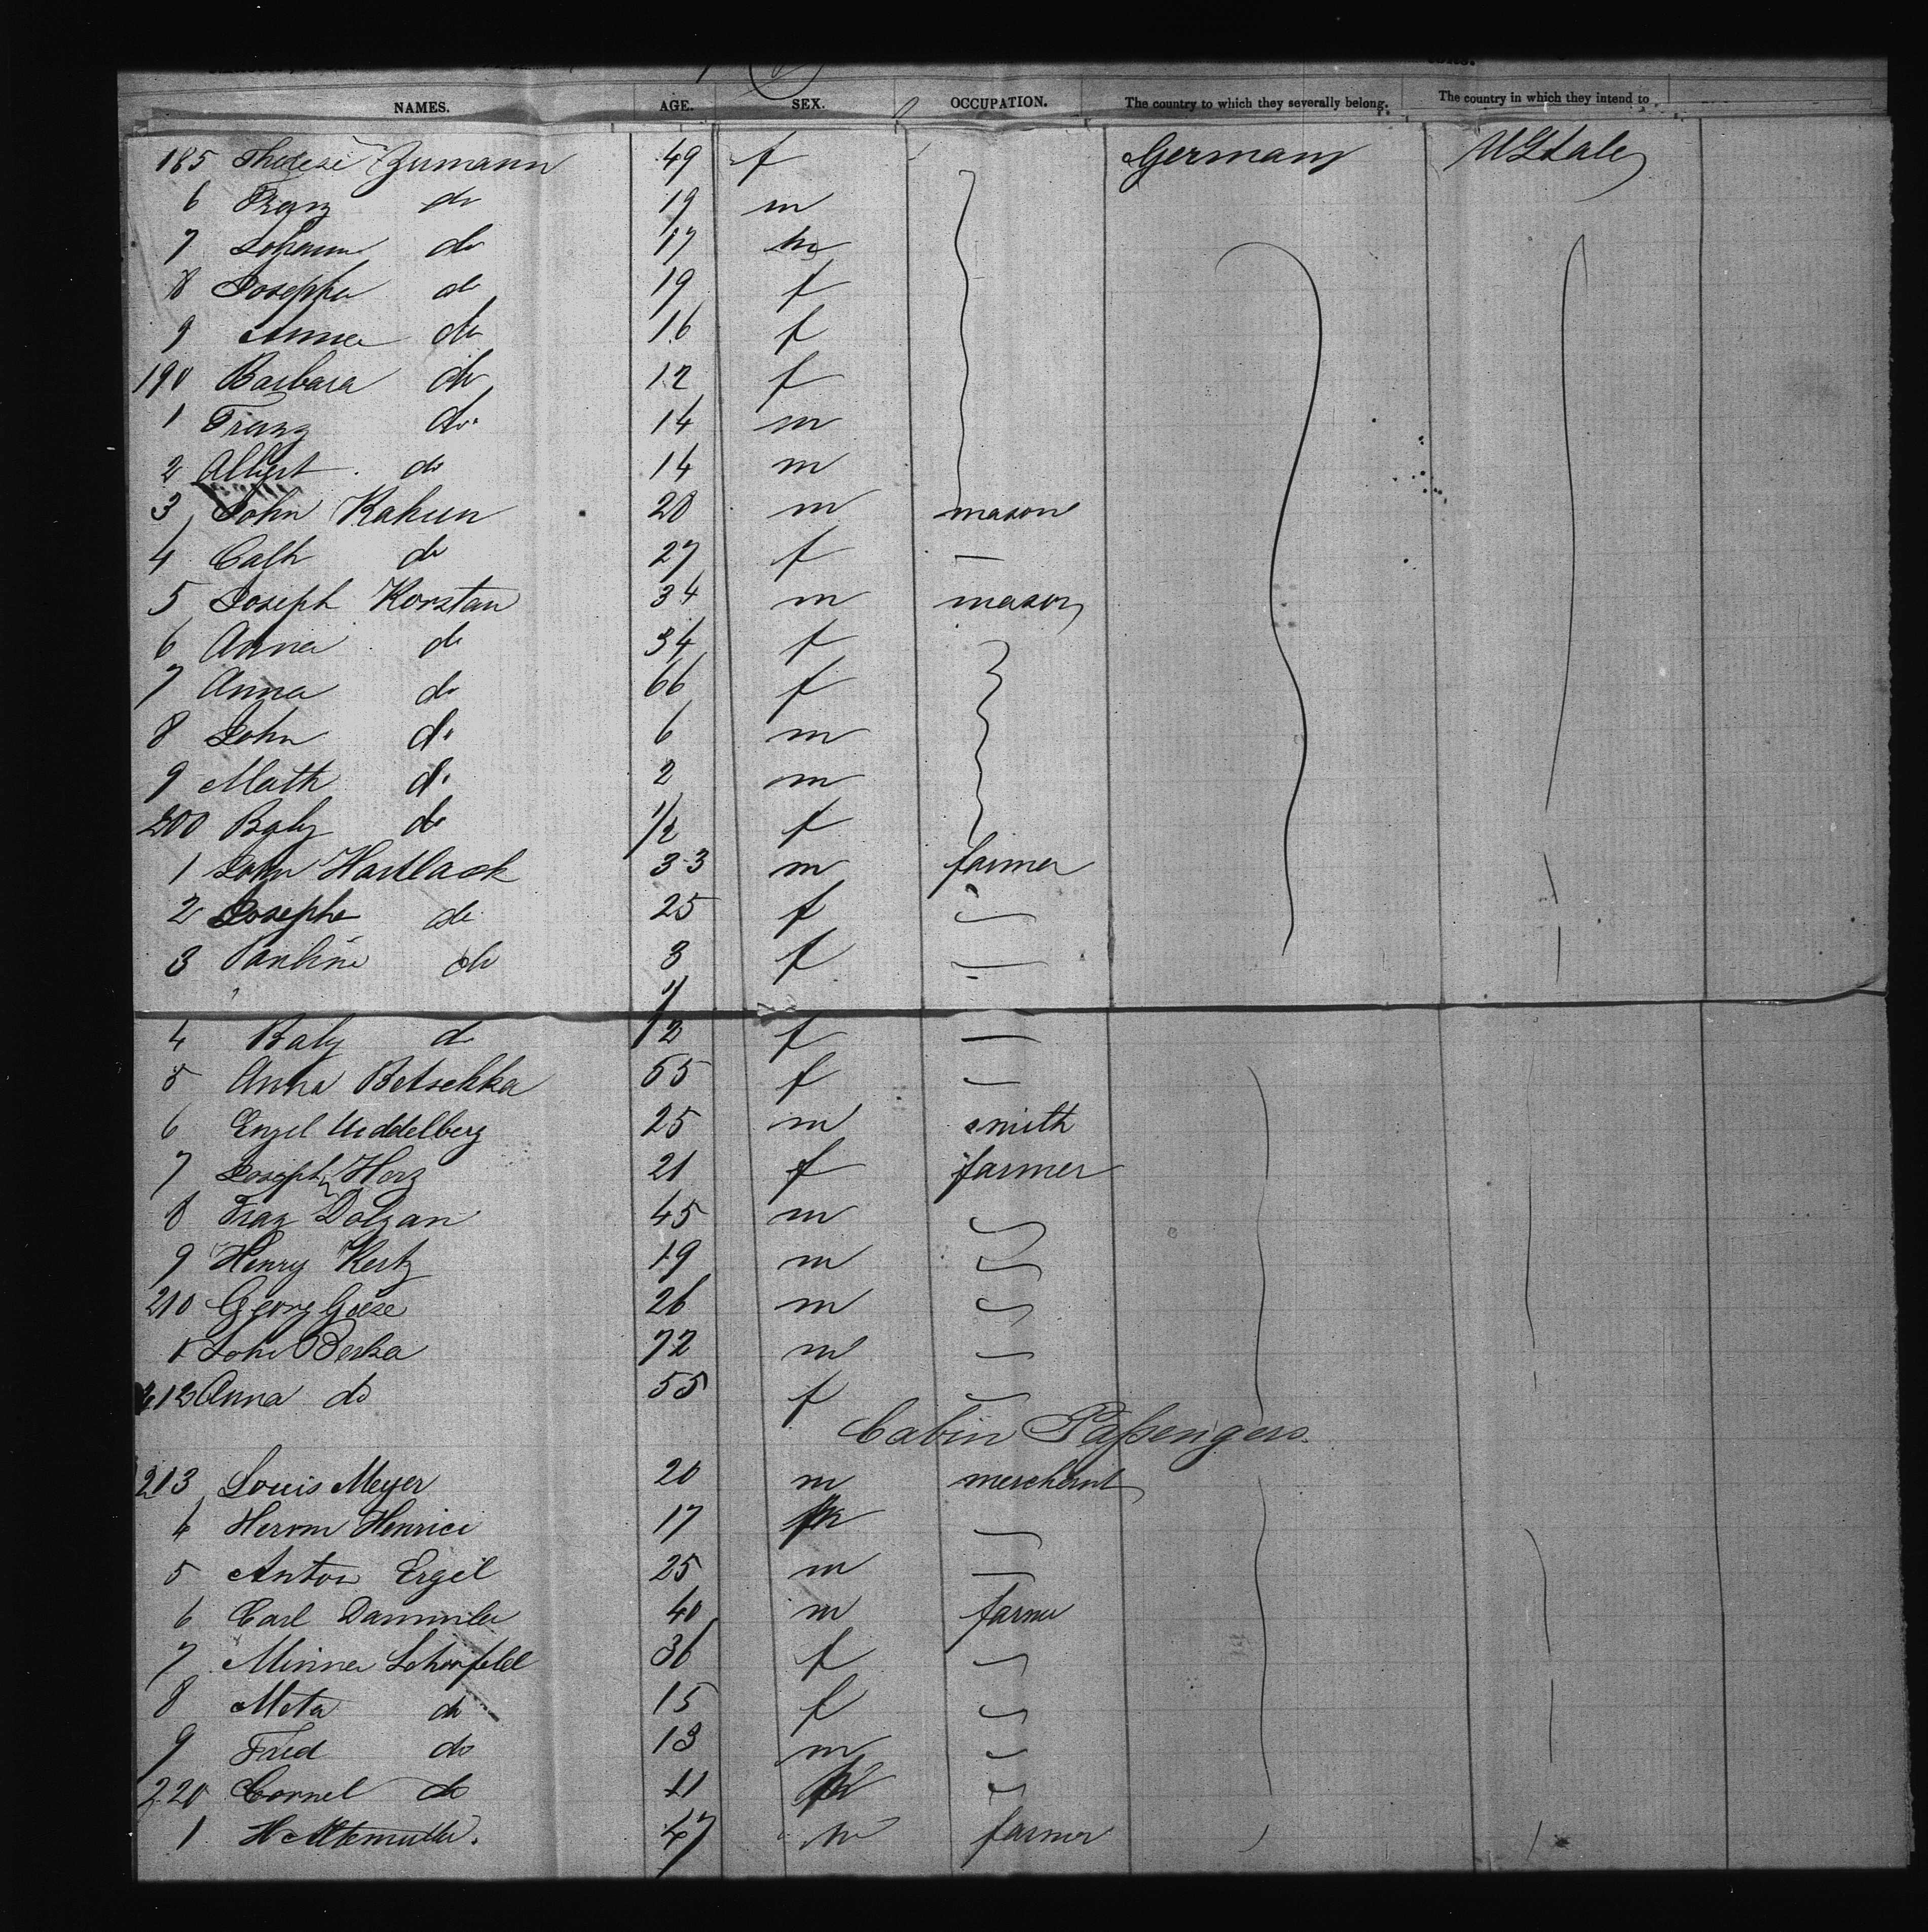 NAMES. AGE. SEX. OCCUPATION. The country to which they severally belong. The country in which they intend to
185 Therese Zumann 49 f Germany U States
6 Franz do 19 m
7 Johann do 17 m
8 Josepha do 19 f
9 Anna do 16 f
190 Barbara do 12 f
1 Franz do. 14 m
2 Albert do 14 m
3 John Kahun 20 m mason
4 Cath do 27 f —
5 Joseph Korstan 34 m mason
6 Anna do 34 f
7 Anna do 66 f
8 John do 6 m
9 Math do 2 m
200 Baby do 1/2 f
1 John Hartlack 33 m farmer
2 Josepha do 25 f —
3 Pauline do 3 f —
4 Baby do 1/2 f —
5 Anna Betschka 55 f —
6 Engel Uddelberg 25 m smith
7 Joseph Herz 21 f farmer
8 Fraz Dolzan 45 m
9 Henry Kertz 19 m
210 Georg Goeze 26 m
1 John Berka 72 m —
212 Anna do 55 f —
Cabin Passengers.
213 Louis Meyer 20 m merchant
4 Herom Henrici 17 m —
5 Anton Ergil 25 m —
6 Carl Dammiler 40 m farmer
7 Minna Schönfeld 36 f
8 Meta do 15 f
9 Fried do 13 m
220 Cornel do 11 m
1 H Altemuller. 47 m farmer